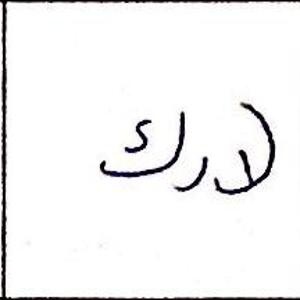 لا رك